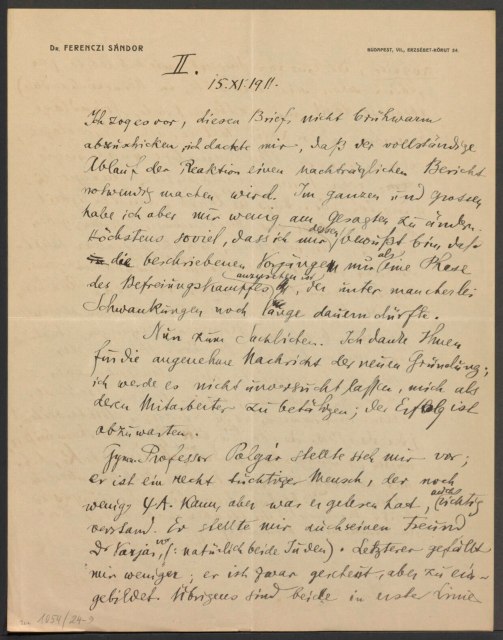 Dr. FERENCZI SÁNDOR
BUDAPEST, VII., ERZSÉBET-KÖRUT 54.
II.
15.XI.1911.
Ich zog es vor, diesen Brief nicht brühwarm
abzuschicken, ich dachte mir, daß der vollständige
Ablauf der Reaktion einen nachträglichen Bericht
notwendig machen wird. Im ganzen und grossen
habe ich aber nur wenig am Gesagten zu ändern.
Höchstens soviel, dass ich mir dessen bewußt bin, daß
die beschriebenen Vorgänge nur als eine Phase
des Befreiungskampfes anzusehen sind, der unter mancherlei
Schwankungen noch lange dauern dürfte.
Nun zum Sachlichen. Ich danke Ihnen
für die angenehme Nachricht der neuen Gründung;
ich werde es nicht unversucht lassen, mich als
deren Mitarbeiter zu betätigen; der Erfolg ist
abzuwarten.
Gymn. Professor Polgár stellte sich mir vor;
er ist ein recht tüchtiger Mensch, der noch
wenig ΨA. kann, aber was er gelesen hat, auch richtig
verstand. Er stellte mir auch seinen Freund
Dr Varjas vor (: natürlich beide Juden). Letzterer gefällt
mir weniger; er ist zwar gescheut, aber zu ein-
gebildet. Übrigens sind beide in erster Linie
1054/24-2